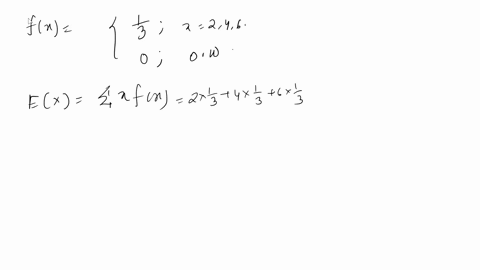 f(x) = { 1/3 ; x = 2,4,6.
0 ; 0.W
E(x) = Σ x f(x) = 2×1/3 + 4×1/3 + 6×1/3